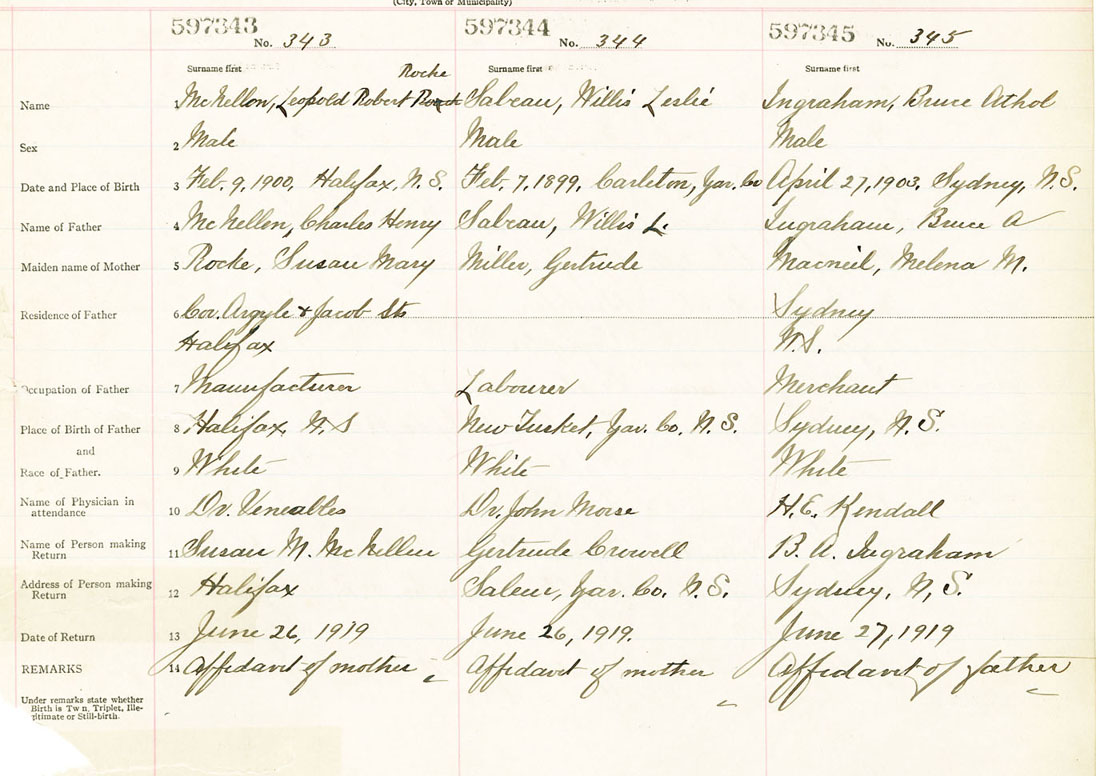 (City, Town or Municipality)
597343 No. 343 597344 No. 344 597345 No. 345
Surname first Rocke Surname first Surname first
Name McKellon, Leopold Robert Sabeau, Willis Leslie Ingraham, Bruce Athol
Sex 2 Male Male Male
Date and Place of Birth 3 Feb. 9, 1900, Halifax, N.S. Feb. 7, 1899, Carleton, Yar. Co April 27, 1903, Sydney, N.S.
Name of Father 4 McKellon, Charles Henry Sabeau, Willis L. Ingraham, Bruce A
Maiden name of Mother 5 Rocke, Susan Mary Miller, Gertrude Macneil, Melena M.
Residence of Father 6 Cor. Argyle & Jacob Sts Sydney
Halifax N.S.
Occupation of Father 7 Manufacturer Labourer Merchant
Place of Birth of Father 8 Halifax, N.S New Tusket, Yar. Co. N.S. Sydney, N.S.
and
Race of Father. 9 White White White
Name of Physician in attendance 10 Dr. Veneables Dr. John Morse H.E. Kendall
Name of Person making Return 11 Susan M. McKellen Gertrude Crowell B. A. Ingraham
Address of Person making Return 12 Halifax Salem, Yar. Co. N.S. Sydney, N.S.
Date of Return 13 June 26, 1919 June 26, 1919. June 27, 1919
REMARKS 14 Affidavit of mother Affidavit of mother Affidavit of father
Under remarks state whether
Birth is Twin, Triplet, Ille-
gitimate or Still-birth.